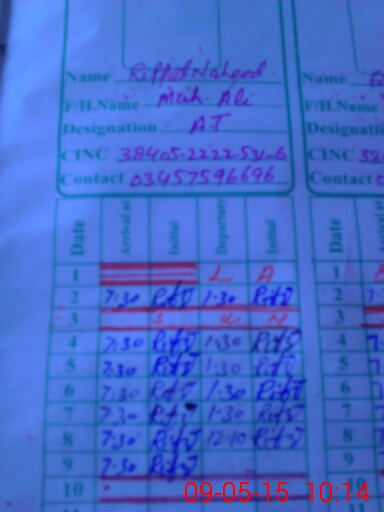 Name Riffat Naheed Name
F/H.Name Muh. Ali F/H.Name
Designation AT Designati
CINC 38405-2222531-6 CINC 38
Contact 03457596696 Contact 0
Date Arrival at Initial Departure Initial Date Arrival at
1 L A 1
2 7:30 Rift 1:30 Rift 2 7
3 S U N 3
4 7:30 Rift 1:30 Rift 4
5 7:30 Rift 1:30 Rift 5
6 7:30 Rift 1:30 Rift 6
7 7:30 Rift 1:30 Rift 7
8 7:30 Rift 12:10 Rift 8
9 7:30 Rift 9
10 10
09-05-15 10:14